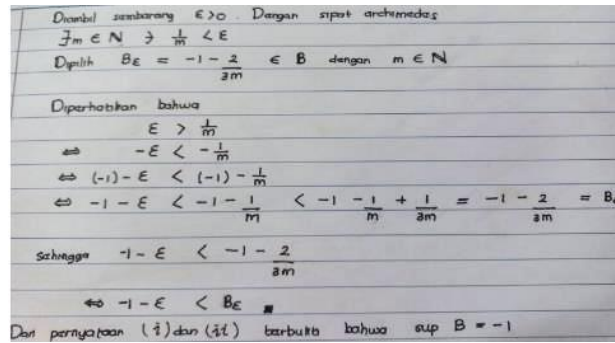 Diambil sembarang ε > 0. Dengan sipat archimedes
∃m ∈ N ∋ 1/m < ε
Dipilih Bε = -1 - 2/3m ∈ B dengan m ∈ N
Diperhatikan bahwa
ε > 1/m
⇔ -ε < -1/m
⇔ (-1) - ε < (-1) - 1/m
⇔ -1 - ε < -1 - 1/m < -1 - 1/m + 1/3m = -1 - 2/3m = Bε
Sehingga -1 - ε < -1 - 2/3m
⇔ -1 - ε < Bε ■
Dari pernyataan (i) dan (ii) terbukti bahwa sup B = -1